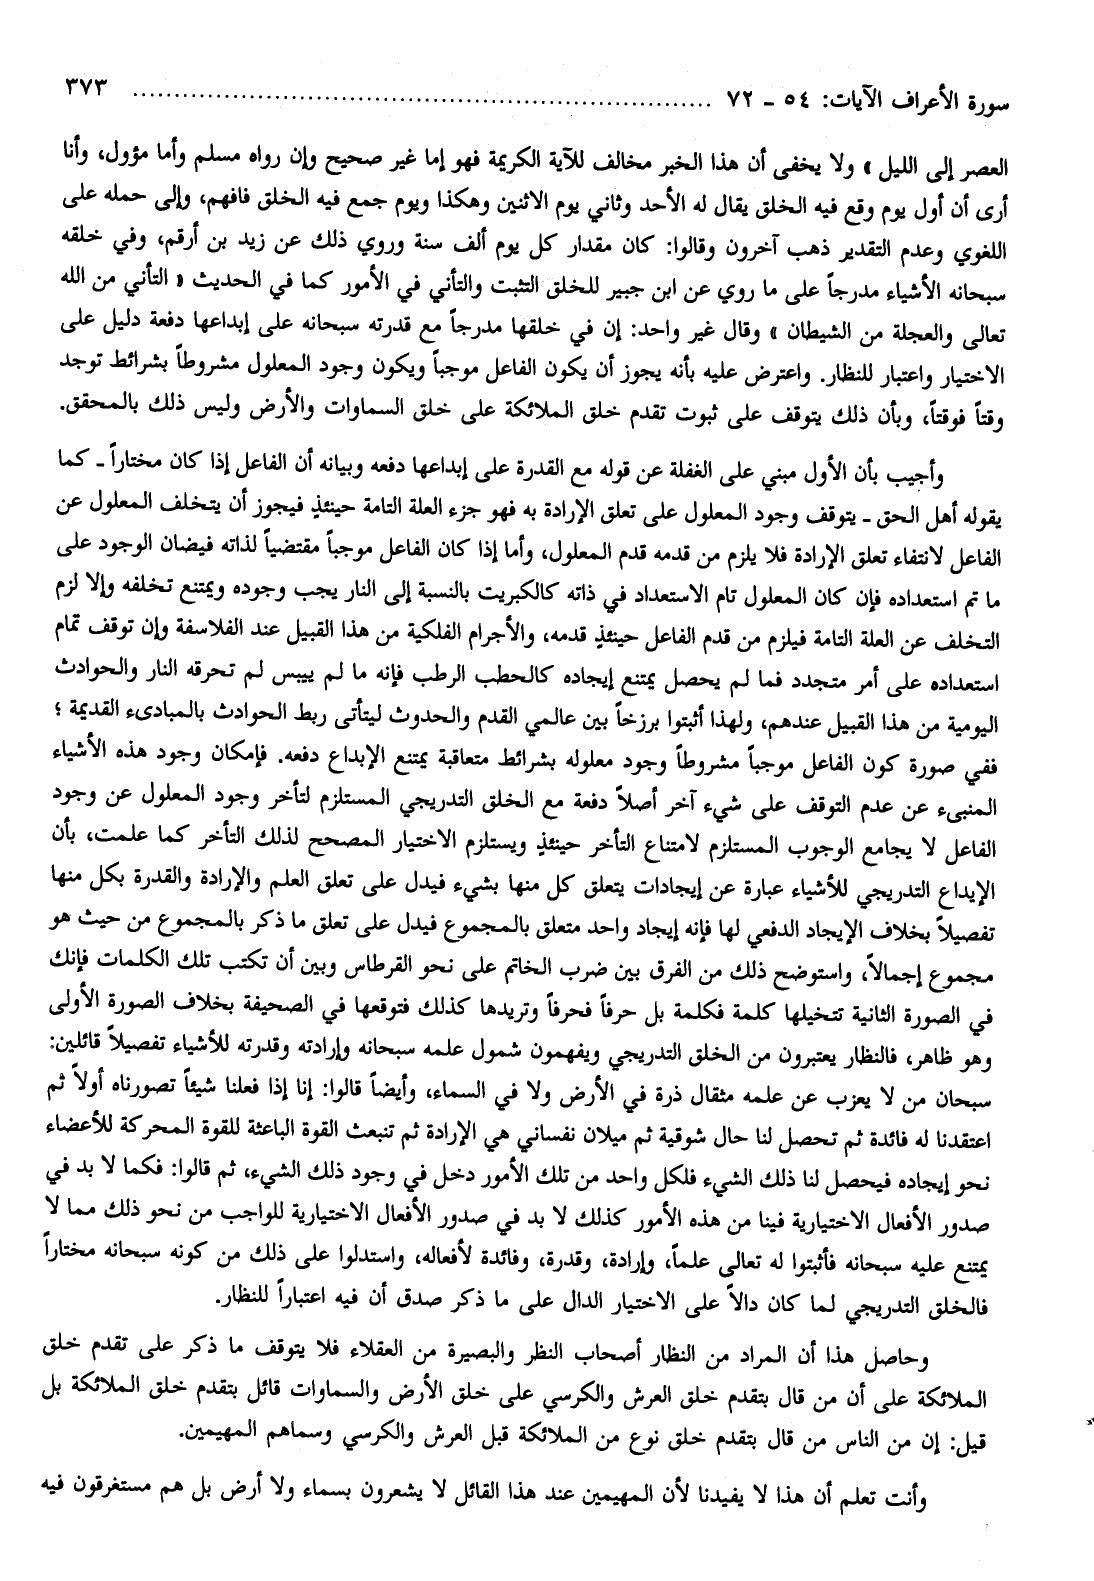 سورة الأعراف الآيات: ٥٤ ـ ٧٢ ........................................................................ ٣٧٣
العصر إلى الليل » ولا يخفى أن هذا الخبر مخالف للآية الكريمة فهو إما غير صحيح وإن رواه مسلم وأما مؤول، وأنا
أرى أن أول يوم وقع فيه الخلق يقال له الأحد وثاني يوم الاثنين وهكذا ويوم جمع فيه الخلق فافهم، وإلى حمله على
اللغوي وعدم التقدير ذهب آخرون وقالوا: كان مقدار كل يوم ألف سنة وروي ذلك عن زيد بن أرقم، وفي خلقه
سبحانه الأشياء مدرجاً على ما روي عن ابن جبير للخلق التثبت والتأني في الأمور كما في الحديث « التأني من الله
تعالى والعجلة من الشيطان » وقال غير واحد: إن في خلقها مدرجاً مع قدرته سبحانه على إبداعها دفعة دليل على
الاختيار واعتبار للنظار. واعترض عليه بأنه يجوز أن يكون الفاعل موجباً ويكون وجود المعلول مشروطاً بشرائط توجد
وقتاً فوقتاً، وبأن ذلك يتوقف على ثبوت تقدم خلق الملائكة على خلق السماوات والأرض وليس ذلك بالمحقق.
وأجيب بأن الأول مبني على الغفلة عن قوله مع القدرة على إبداعها دفعه وبيانه أن الفاعل إذا كان مختاراً ـ كما
يقوله أهل الحق ـ يتوقف وجود المعلول على تعلق الإرادة به فهو جزء العلة التامة حينئذٍ فيجوز أن يتخلف المعلول عن
الفاعل لانتفاء تعلق الإرادة فلا يلزم من قدمه قدم المعلول، وأما إذا كان الفاعل موجباً مقتضياً لذاته فيضان الوجود على
ما تم استعداده فإن كان المعلول تام الاستعداد في ذاته كالكبريت بالنسبة إلى النار يجب وجوده ويمتنع تخلفه وإلا لزم
التخلف عن العلة التامة فيلزم من قدم الفاعل حينئذٍ قدمه، والأجرام الفلكية من هذا القبيل عند الفلاسفة وإن توقف تمام
استعداده على أمر متجدد فما لم يحصل يمتنع إيجاده كالحطب الرطب فإنه ما لم ييبس لم تحرقه النار والحوادث
اليومية من هذا القبيل عندهم، ولهذا أثبتوا برزخاً بين عالمي القدم والحدوث ليتأتى ربط الحوادث بالمبادىء القديمة ؛
ففي صورة كون الفاعل موجباً مشروطاً وجود معلوله بشرائط متعاقبة يمتنع الإبداع دفعه. فإمكان وجود هذه الأشياء
المنبىء عن عدم التوقف على شيء آخر أصلاً دفعة مع الخلق التدريجي المستلزم لتأخر وجود المعلول عن وجود
الفاعل لا يجامع الوجوب المستلزم لامتناع التأخر حينئذٍ ويستلزم الاختيار المصحح لذلك التأخر كما علمت، بأن
الإبداع التدريجي للأشياء عبارة عن إيجادات يتعلق كل منها بشيء فيدل على تعلق العلم والإرادة والقدرة بكل منها
تفصيلاً بخلاف الإيجاد الدفعي لها فإنه إيجاد واحد متعلق بالمجموع فيدل على تعلق ما ذكر بالمجموع من حيث هو
مجموع إجمالاً، واستوضح ذلك من الفرق بين ضرب الخاتم على نحو القرطاس وبين أن تكتب تلك الكلمات فإنك
في الصورة الثانية تتخيلها كلمة فكلمة بل حرفاً فحرفاً وتريدها كذلك فتوقعها في الصحيفة بخلاف الصورة الأولى
وهو ظاهر، فالنظار يعتبرون من الخلق التدريجي ويفهمون شمول علمه سبحانه وإرادته وقدرته للأشياء تفصيلاً قائلين:
سبحان من لا يعزب عن علمه مثقال ذرة في الأرض ولا في السماء، وأيضاً قالوا: إنا إذا فعلنا شيئاً تصورناه أولاً ثم
اعتقدنا له فائدة ثم تحصل لنا حال شوقية ثم ميلان نفساني هي الإرادة ثم تنبعث القوة الباعثة للقوة المحركة للأعضاء
نحو إيجاده فيحصل لنا ذلك الشيء فلكل واحد من تلك الأمور دخل في وجود ذلك الشيء، ثم قالوا: فكما لا بد في
صدور الأفعال الاختيارية فينا من هذه الأمور كذلك لا بد في صدور الأفعال الاختيارية للواجب من نحو ذلك مما لا
يمتنع عليه سبحانه فأثبتوا له تعالى علماً، وإرادة، وقدرة، وفائدة لأفعاله، واستدلوا على ذلك من كونه سبحانه مختاراً
فالخلق التدريجي لما كان دالاً على الاختيار الدال على ما ذكر صدق أن فيه اعتباراً للنظار.
وحاصل هذا أن المراد من النظار أصحاب النظر والبصيرة من العقلاء فلا يتوقف ما ذكر على تقدم خلق
الملائكة على أن من قال بتقدم خلق العرش والكرسي على خلق الأرض والسماوات قائل بتقدم خلق الملائكة بل
قيل: إن من الناس من قال بتقدم خلق نوع من الملائكة قبل العرش والكرسي وسماهم المهيمين.
وأنت تعلم أن هذا لا يفيدنا لأن المهيمين عند هذا القائل لا يشعرون بسماء ولا أرض بل هم مستغرقون فيه